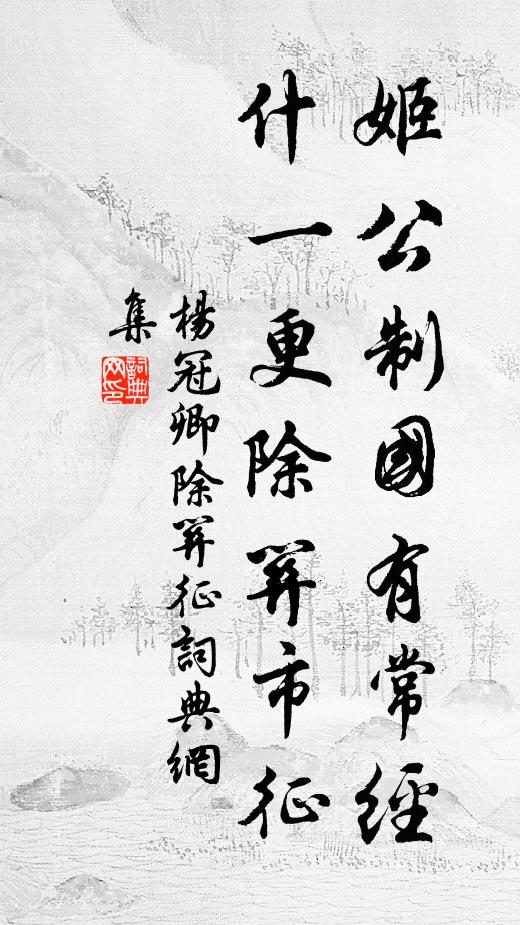 姬公制國有常經
什一更除關市征
楊冠卿除關征詞典網
集
詞典網印